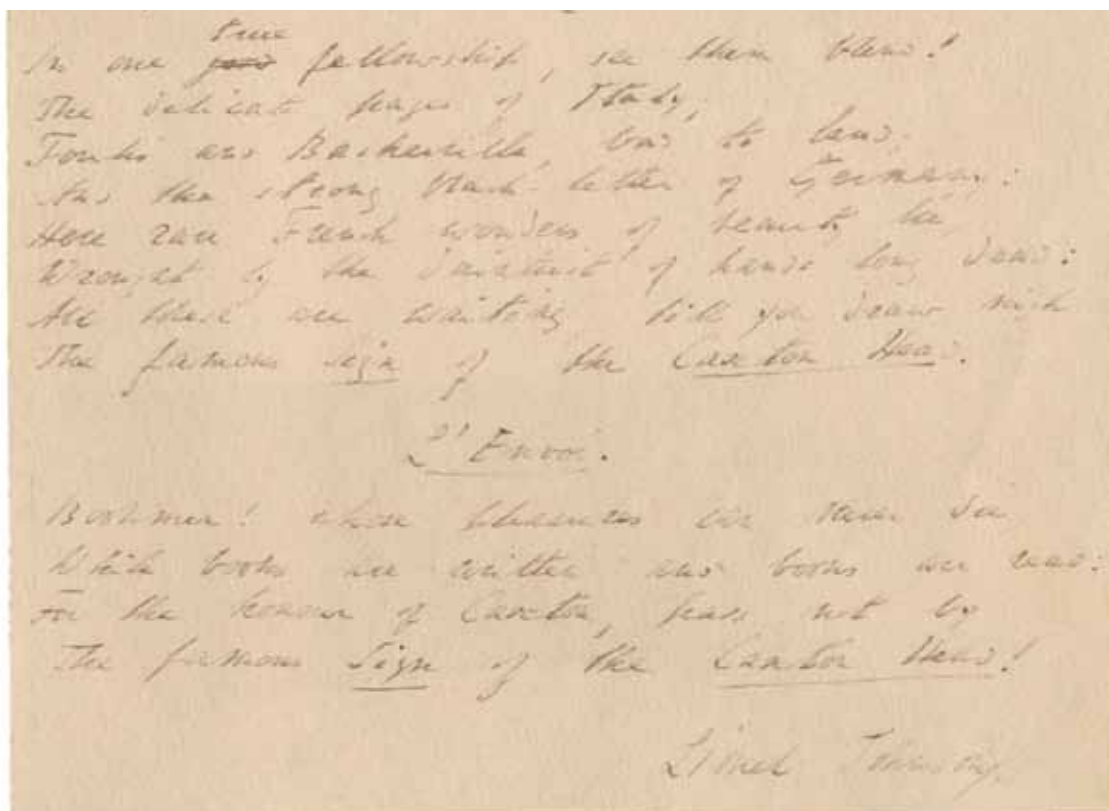 true
In one fellowship, see them blend!
The delicate pages of Italy;
Foulis and Baskerville, bad to lend;
And the strong black letter of Germany:
Here rare French wonders of beauty lie,
Wrought by the daintiest of hands long dead:
All these are waiting till you draw nigh
The famous sign of the Caxton Head.
L'Envoi.
Bookmen! whose pleasures can never die
While books are written and books are read:
For the honour of Caxton, pass not by
The famous Sign of the Caxton Head!
Lionel Johnson.